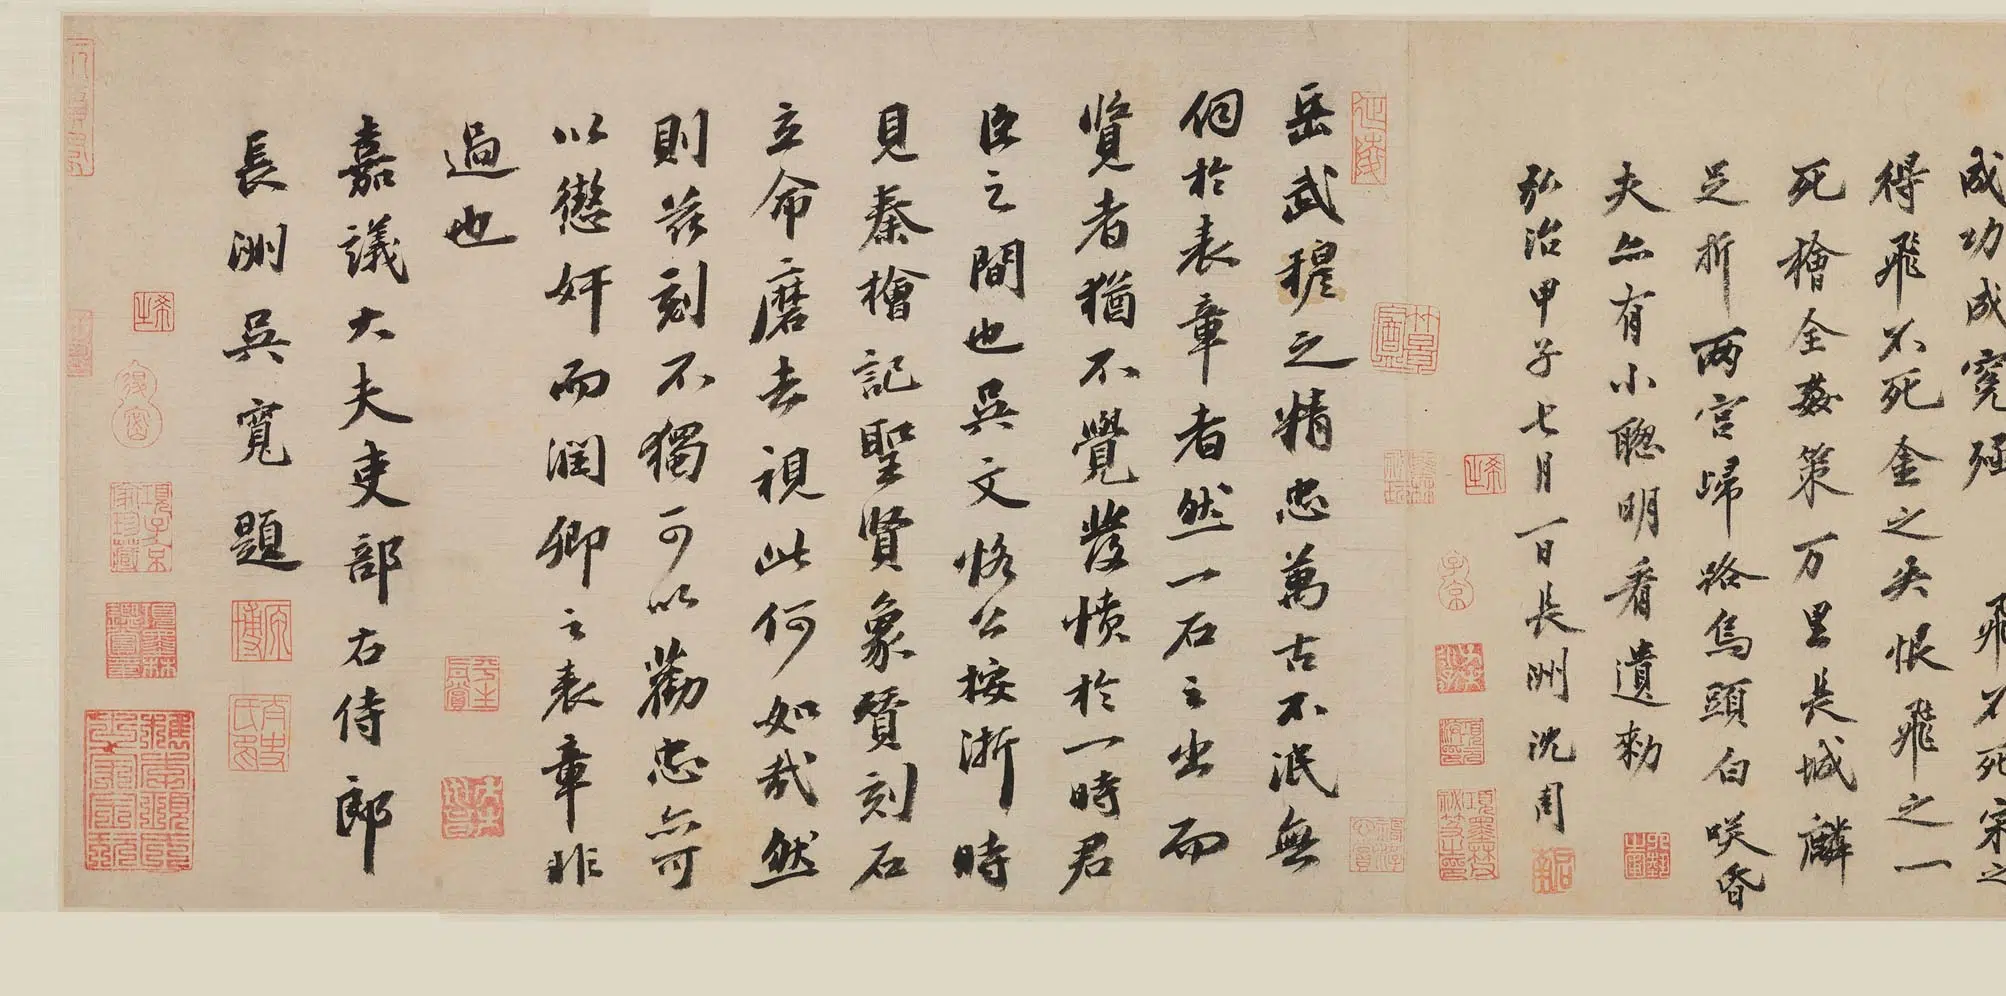 成功成寃殛飛不死宋之
得飛不死金之失恨飛之一
死檜全姦策万里長城麟
足折两宫歸路烏頭白咲昏
夫亦有小聰明看遺勑
弘治甲子七月一日長洲沈周
岳武穆之精忠萬古不泯無
伺於表章者然一石之出而
覽者猶不覺發憤於一時君
臣之間也吳文恪公按浙時
見秦檜記聖賢象贊刻石
立命磨去視此何如哉然
則茲刻不獨可以勸忠亦可
以懲奸而潤卿之表章非
過也
嘉議大夫吏部右侍郎
長洲吳寬題
原博
子京
項子京家珍藏
項墨林鑑賞章